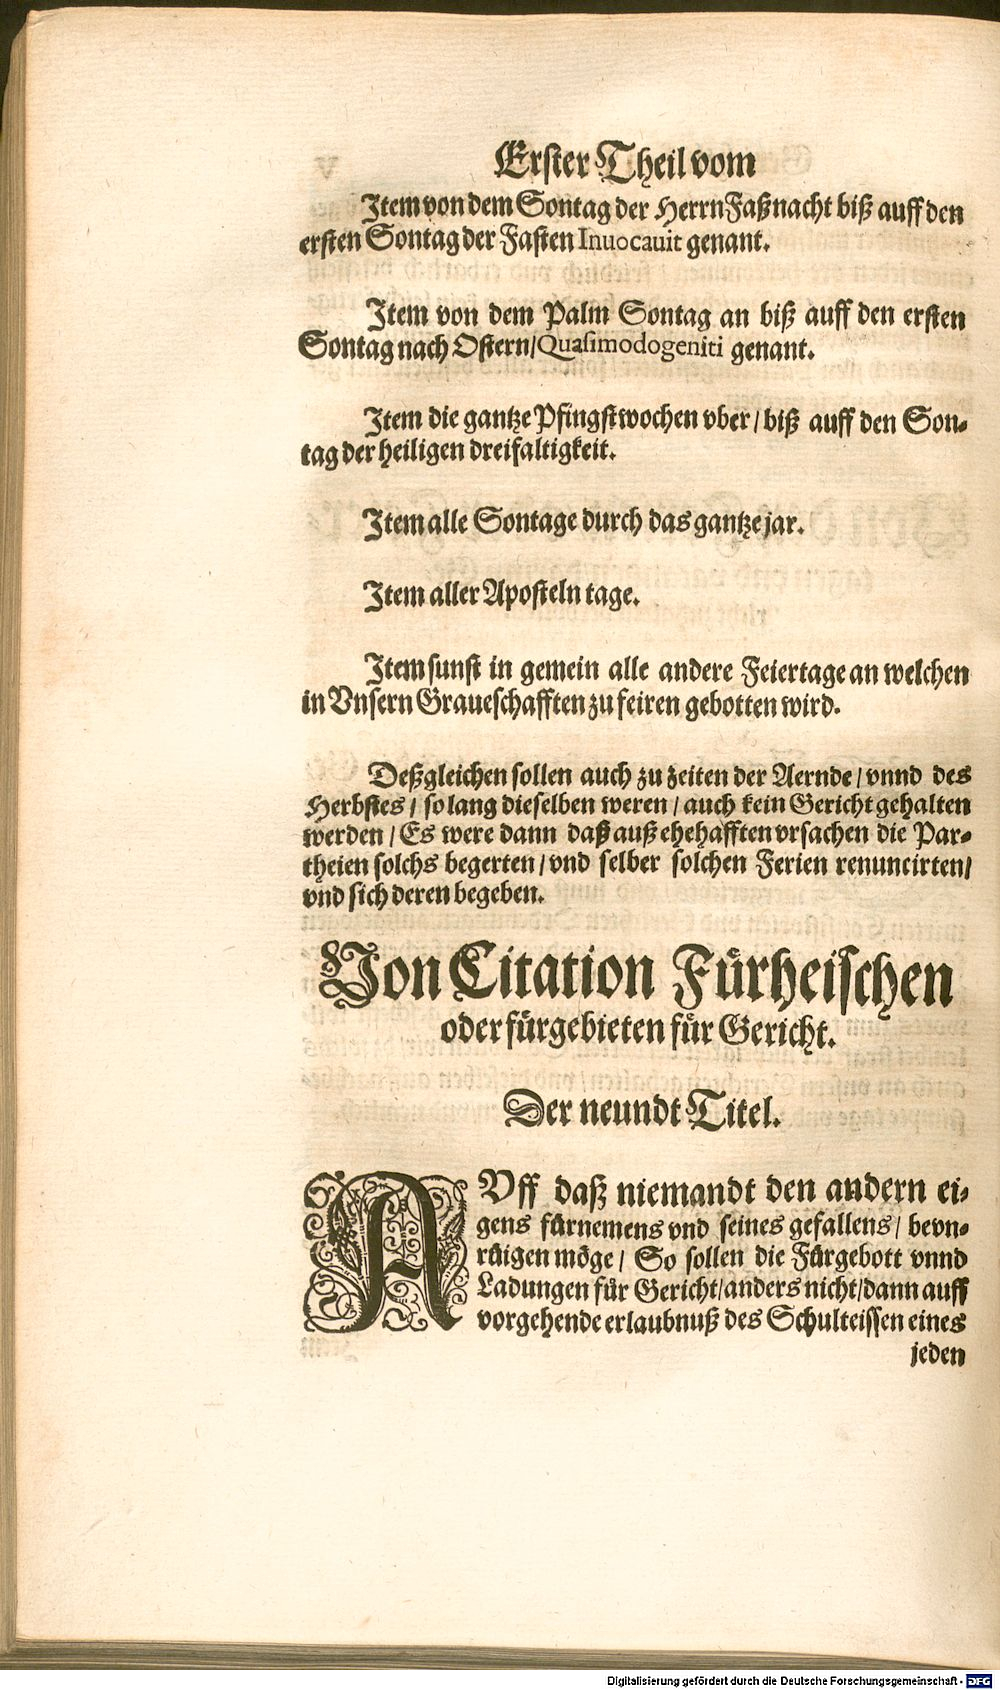 Erster Theil vom
Item von dem Sontag der Herrn Faßnacht biß auff den
ersten Sontag der Fasten Inuocauit genant.
Item von dem Palm Sontag an biß auff den ersten
Sontag nach Ostern/Quasimodogeniti genant.
Item die gantze Pfingstwochen vber/ biß auff den Son-
tag der heiligen dreifaltigkeit.
Item alle Sontage durch das gantze jar.
Item aller Aposteln tage.
Item sunst in gemein alle andere Feiertage an welchen
in Vnsern Graueschafften zu feiren gebotten wird.
Deßgleichen sollen auch zu zeiten der Aernde/ vnnd des
Herbstes/ so lang dieselben weren/ auch kein Gericht gehalten
werden/ Es were dann daß auß ehehafften vrsachen die Par-
theien solchs begerten/ vnd selber solchen Ferien renuncirten/
vnd sich deren begeben.
Von Citation Fürheischen
oder fürgebieten für Gericht.
Der neundt Titel.
AVff daß niemandt den andern ei-
gens fürnemens vnd seines gefallens/ bevn-
rüigen möge/ So sollen die Fürgebott vnnd
Ladungen für Gericht/ anders nicht/ dann auff
vorgehende erlaubnuß des Schulteissen eines
jeden
Digitalisierung gefördert durch die Deutsche Forschungsgemeinschaft - DFG